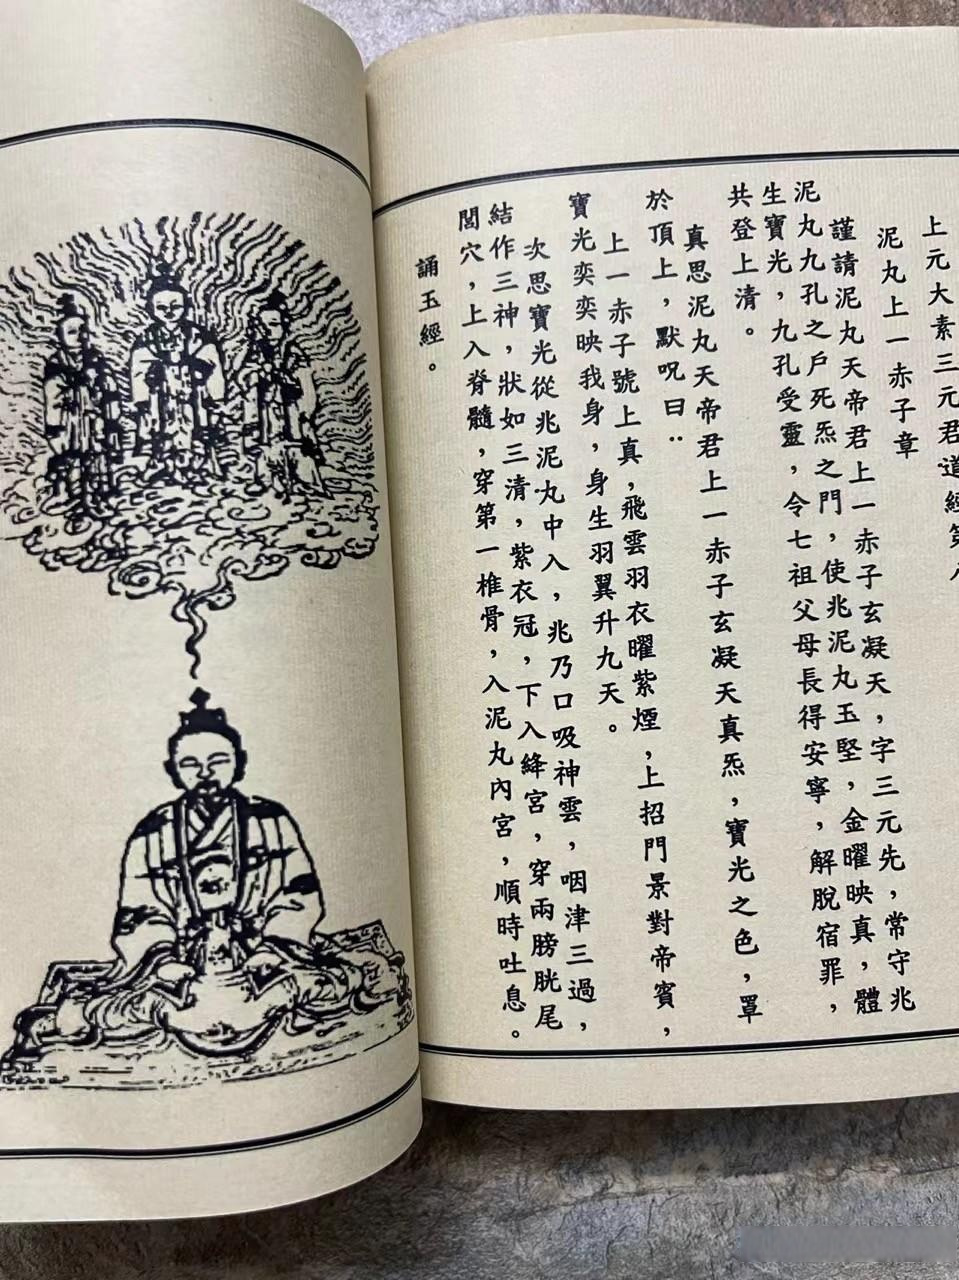 上元大素三元君道經第八
泥丸上一赤子章
謹請泥丸天帝君上一赤子玄凝天，字三元先，常守兆
泥丸九孔之戶死炁之門，使兆泥丸玉堅，金曜映真，體
生寶光，九孔受靈，令七祖父母長得安寧，解脫宿罪，
共登上清。
真思泥丸天帝君上一赤子玄凝天真炁，寶光之色，罩
於頂上，默呪曰：
上一赤子號上真，飛雲羽衣曜紫煙，上招門景對帝賓，
寶光奕奕映我身，身生羽翼升九天。
次思寶光從兆泥丸中入，兆乃口吸神雲，咽津三過，
結作三神，狀如三清，紫衣冠，下入絳宮，穿兩膀胱尾
閭穴，上入脊髓，穿第一椎骨，入泥丸內宮，順時吐息。
誦玉經。